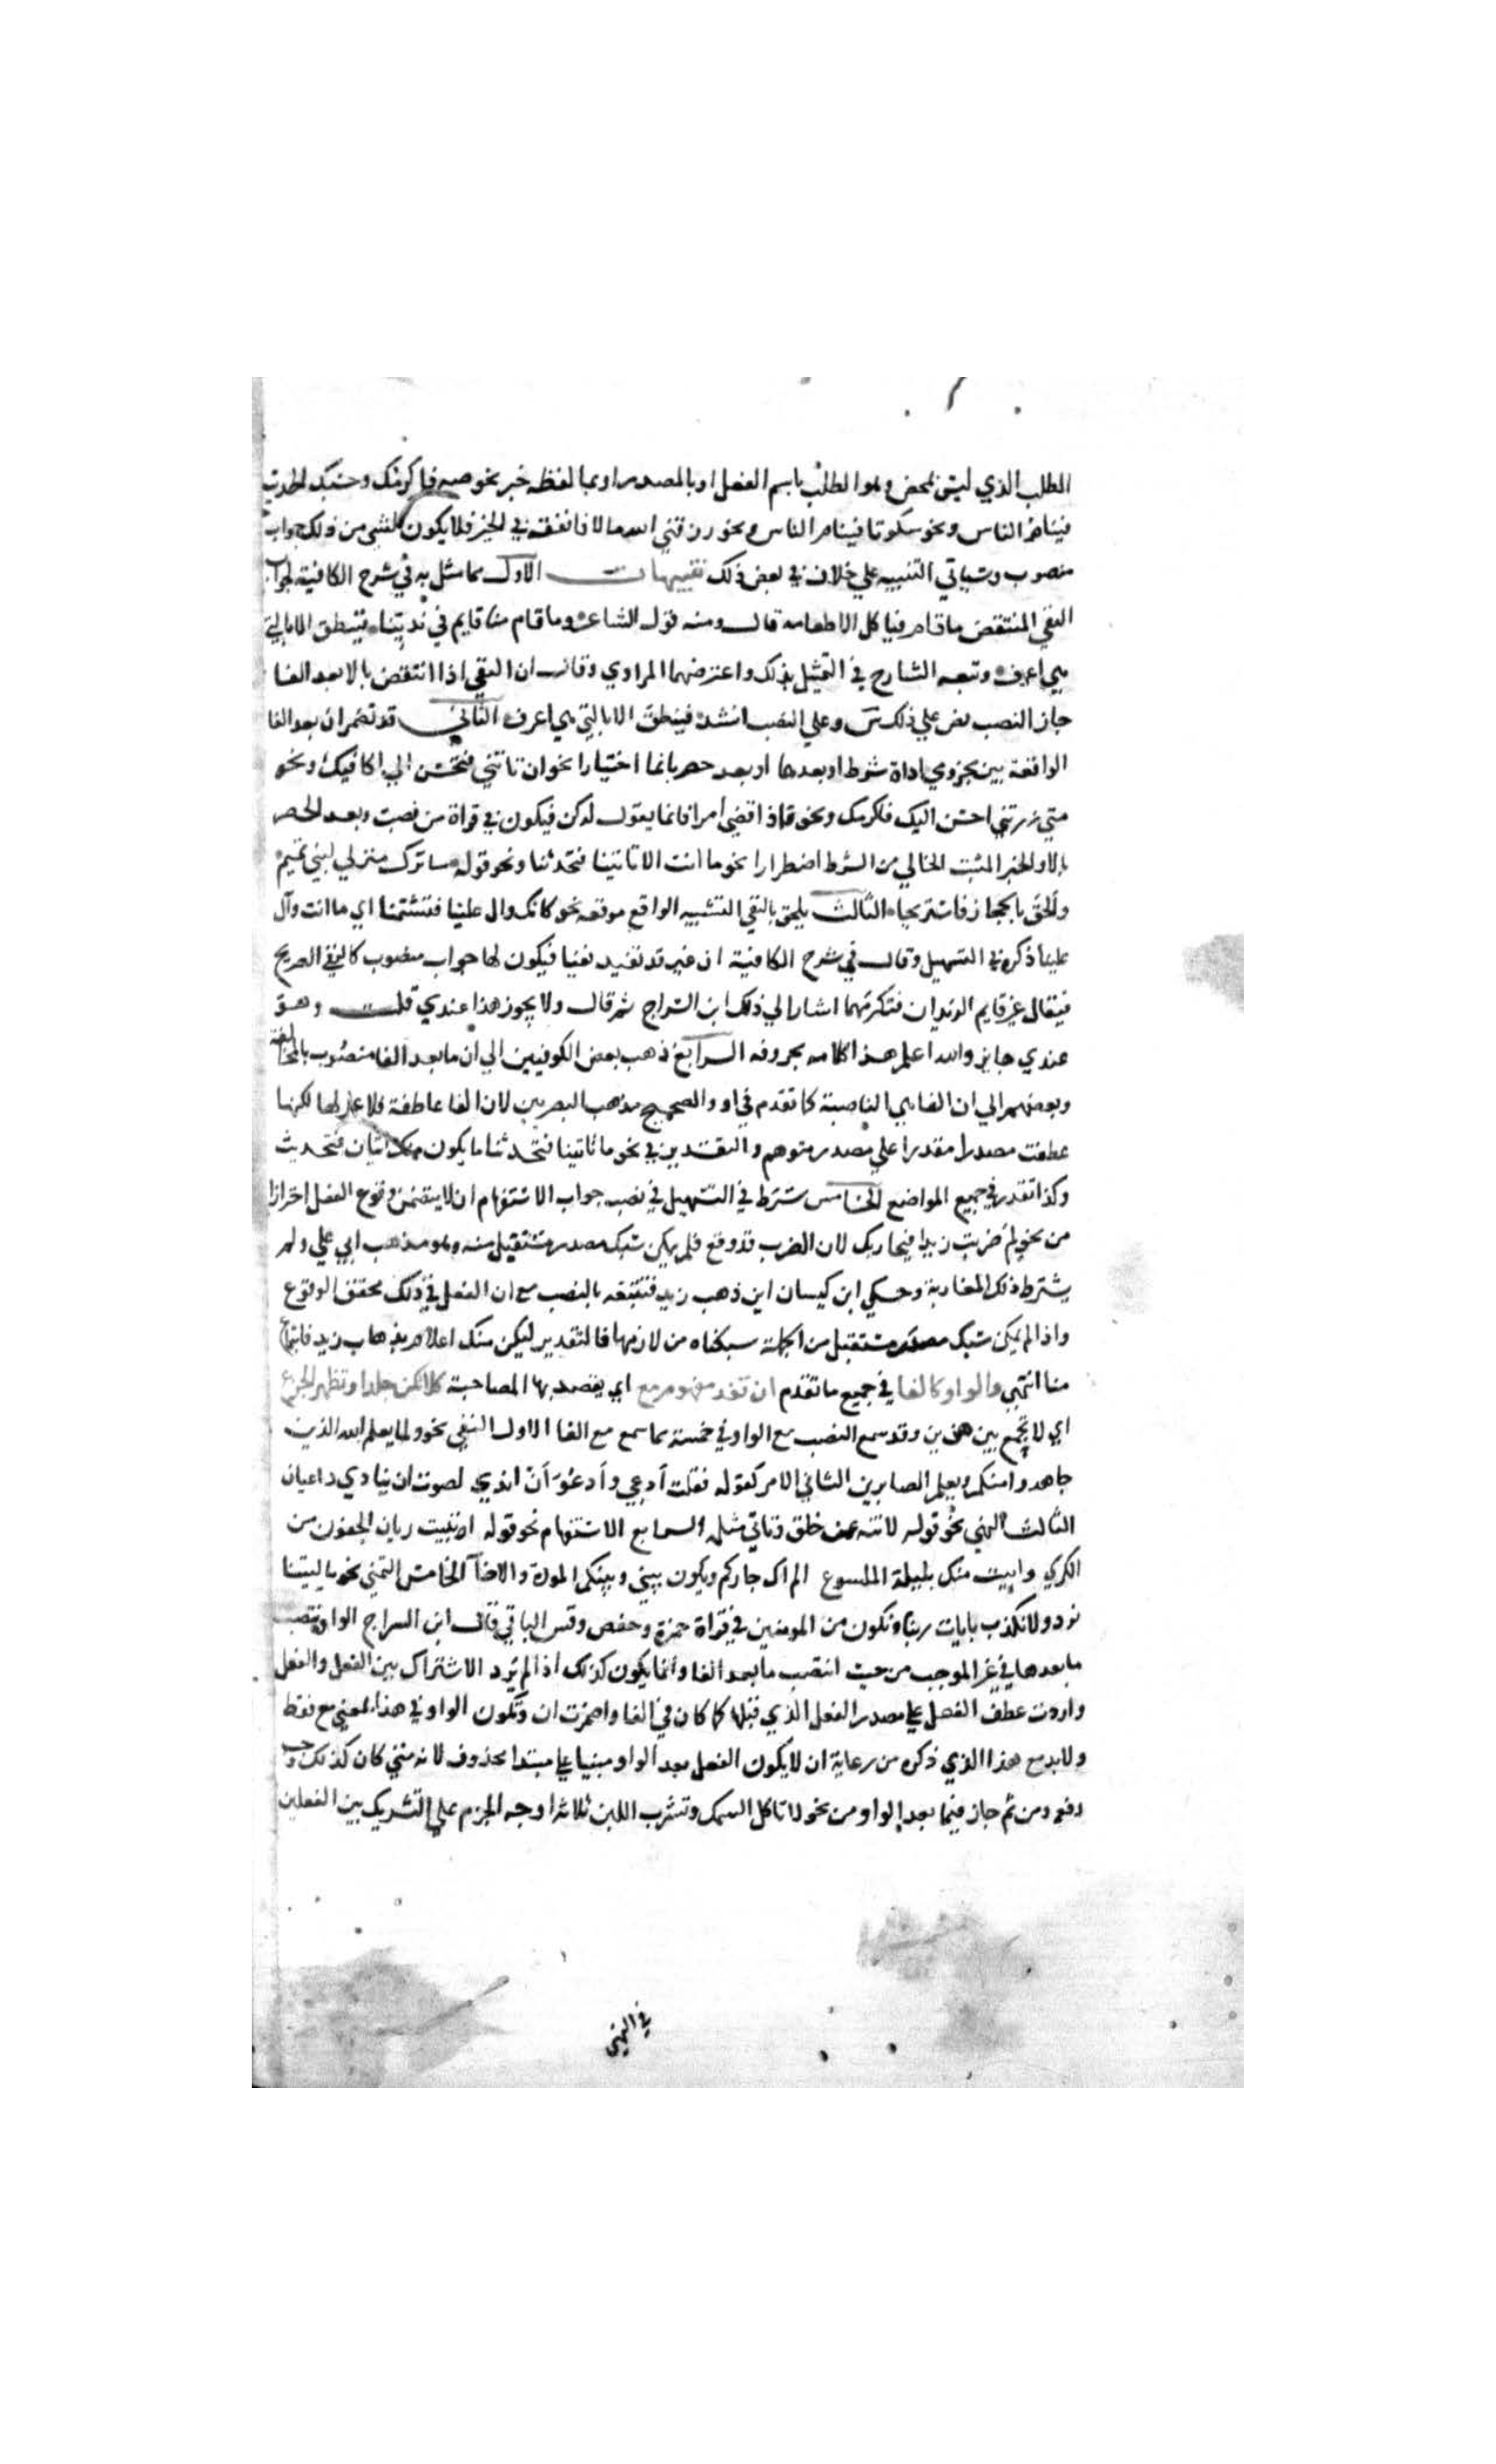 الطلب الذي ليس بمحض وهو الطلب باسم الفعل او بالمصدر او بما لفظه خبر نحو صه فاكرمك وحسبك الحديث
فينام الناس ونحو سكوتا فينام الناس ونحو رزقني الله مالا فانفقه في الخير فلا يكون لشي من ذلك جواب
منصوب وسياتي التنبيه علي خلاف في بعض ذلك تنبيهات الاول مما مثل به في شرح الكافية لجواب
النفي المنتقض ما قام فياكل الا طعامه قال ومنه قول الشاعر وما قام منا قايم في ندينا فينطق الا بالتي
هي اعرف وتبعه الشارح في التمثيل بذلك واعترضهما المرادي وقال ان النفي اذا انتقض بالا بعد الفا
جاز النصب نص علي ذلك س وعلي النصب انشد فينطق الا بالتي هي اعرف الثاني قد تضمر ان بعد الفا
الواقعة بين مجزومي اداة شرط او بعدها او بعد حصر بانما اختيارا نحو ان تاتني فتحسن الي اكافيك ونحو
متي زرتني احسن اليك فاكرمك ونحو فاذا قضي امرا فانما يقول له كن فيكون في قراة من نصب وبعد الحصر
بالا والخبر المثبت الخالي من الشرط اضطرارا نحو ما انت الا تاتينا فتحدثنا ونحو قوله ساترك منزلي لبني تميم
والحق بالحجاز فاستريحا الثالث يلحق بالنفي التشبيه الواقع موقعه نحو كانك وال علينا فتشتمنا اي ما انت وال
علينا ذكره في التسهيل وقال في شرح الكافية ان غير قد تفيد نفيا فيكون لها جواب منصوب كالنفي الصريح
فيقال غير قايم الزيدان فتكرمهما اشار الي ذلك ابن السراج ثم قال ولا يجوز هذا عندي قلت وهو
عندي جايز والله اعلم هذا كلامه بحروفه الرابع ذهب بعض الكوفيين الي ان ما بعد الفا منصوب بالمخالفة
وبعضهم الي ان الفا هي الناصبة كما تقدم في او والصحيح مذهب البصريين لان الفا عاطفة فلا عمل لها لكنها
عطفت مصدرا مقدرا علي مصدر متوهم والتقدير في نحو ما تاتينا فتحدثنا ما يكون منك اتيان فتحديث
وكذا تقدر في جميع المواضع الخامس شرط في التسهيل في نصب جواب الاستفهام ان لا يتضمن وقوع الفعل احترازا
من نحو لم ضربت زيدا فيجازيك لان الضرب قد وقع فلم يمكن سبك مصدر مستقبل منه وهو مذهب ابي علي ولم
يشترط ذلك المغاربة وحكي ابن كيسان اين ذهب زيد فنتبعه بالنصب مع ان الفعل في ذلك محقق الوقوع
واذا لم يمكن سبك مصدر مستقبل من الجملة سبكناه من لازمها فالتقدير ليكن منك اعلام بذهاب زيد فاتباع
منا انتهي والواو كالفا في جميع ما تقدم ان تفد مفهوم مع اي يقصد بها المصاحبة كلا تكن جلدا وتظهر الجزع
اي لا تجمع بين هذين وقد سمع النصب مع الواو في خمسة مما سمع مع الفا الاول النفي نحو ولما يعلم الله الذين
جاهدوا منكم ويعلم الصابرين الثاني الامر كقوله فقلت ادعي وأدعوَ أنّ اندي لصوت ان ينادي داعيان
الثالث النهي نحو قوله لا تنه عن خلق وتاتي مثله الرابع الاستفهام نحو قوله اتبيت ريان الجفون من
الكري وابيت منك بليلة الملسوع الم اك جاركم ويكون بيني وبينكم المودة والاخا الخامس التمني نحو يا ليتنا
نرد ولا نكذب بايات ربنا ونكون من المومنين في قراة حمزة وحفص وقس الباقي قال ابن السراج الواو تنصب
ما بعدها في غير الموجب من حيث انتصب ما بعد الفا وانما يكون كذلك اذا لم ترد الاشتراك بين الفعل والفعل
واردت عطف الفعل علي مصدر الفعل الذي قبلها كما كان في الفا واضمرت ان وتكون الواو في هذا بمعني مع فقط
ولا بد مع هذا الذي ذكره من رعاية ان لا يكون الفعل بعد الواو مبنيا علي مبتدا محذوف لانه متي كان كذلك وجب
رفعه ومن ثم جاز فيما بعد الواو من نحو لا تاكل السمك وتشرب اللبن ثلاثة اوجه الجزم علي التشريك بين الفعلين
في النهي